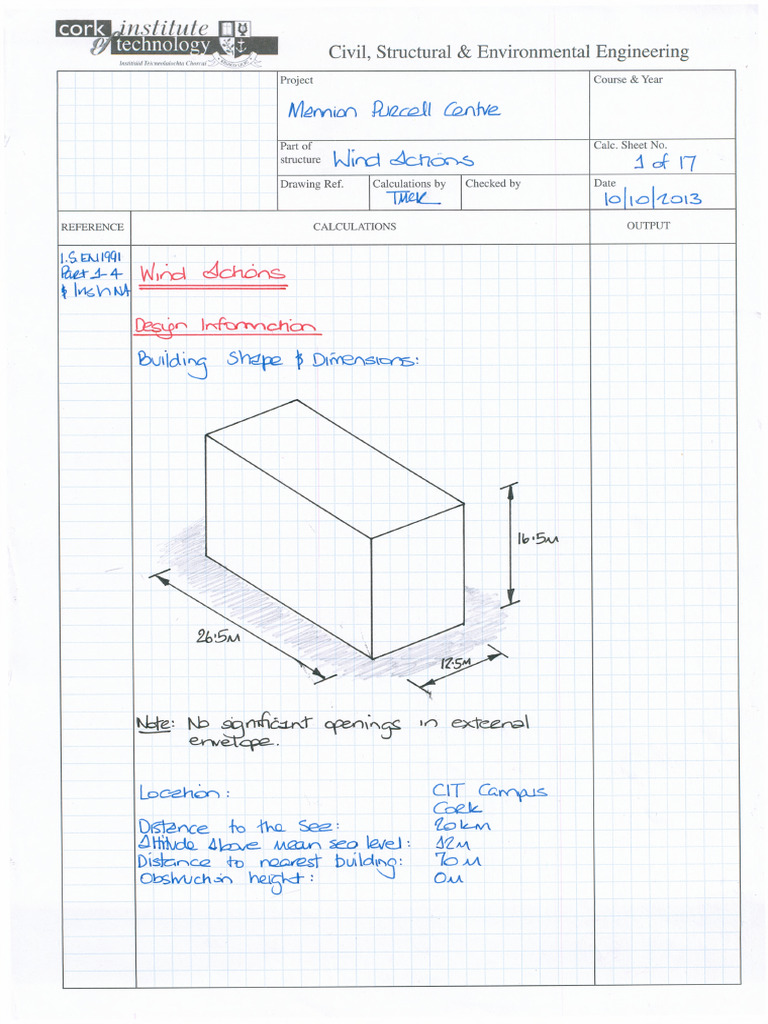 cork institute
of technology
Institiúid Teicneolaíochta Chorcaí
Civil, Structural & Environmental Engineering
Project
Course & Year
Mennion Purcell Centre
Part of
structure
Wind Actions
Calc. Sheet No.
1 of 17
Drawing Ref.
Calculations by
Checked by
Date
10/10/2013
REFERENCE
CALCULATIONS
OUTPUT
I.S. EN 1991
Part 1-4
& Irish NA
Wind Actions
Design Information
Building Shape & Dimensions:
16.5m
26.5m
12.5m
Note: No significant openings in external
envelope.
Location: CIT Campus
Cork
Distance to the Sea: 20km
Altitude Above mean sea level: 42m
Distance to nearest building: 70m
Obstruction height: 0m